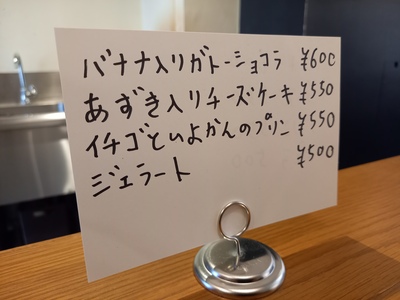 バナナ入りガトーショコラ ¥600
あずき入りチーズケーキ ¥550
イチゴといよかんのプリン ¥550
ジェラート ¥500